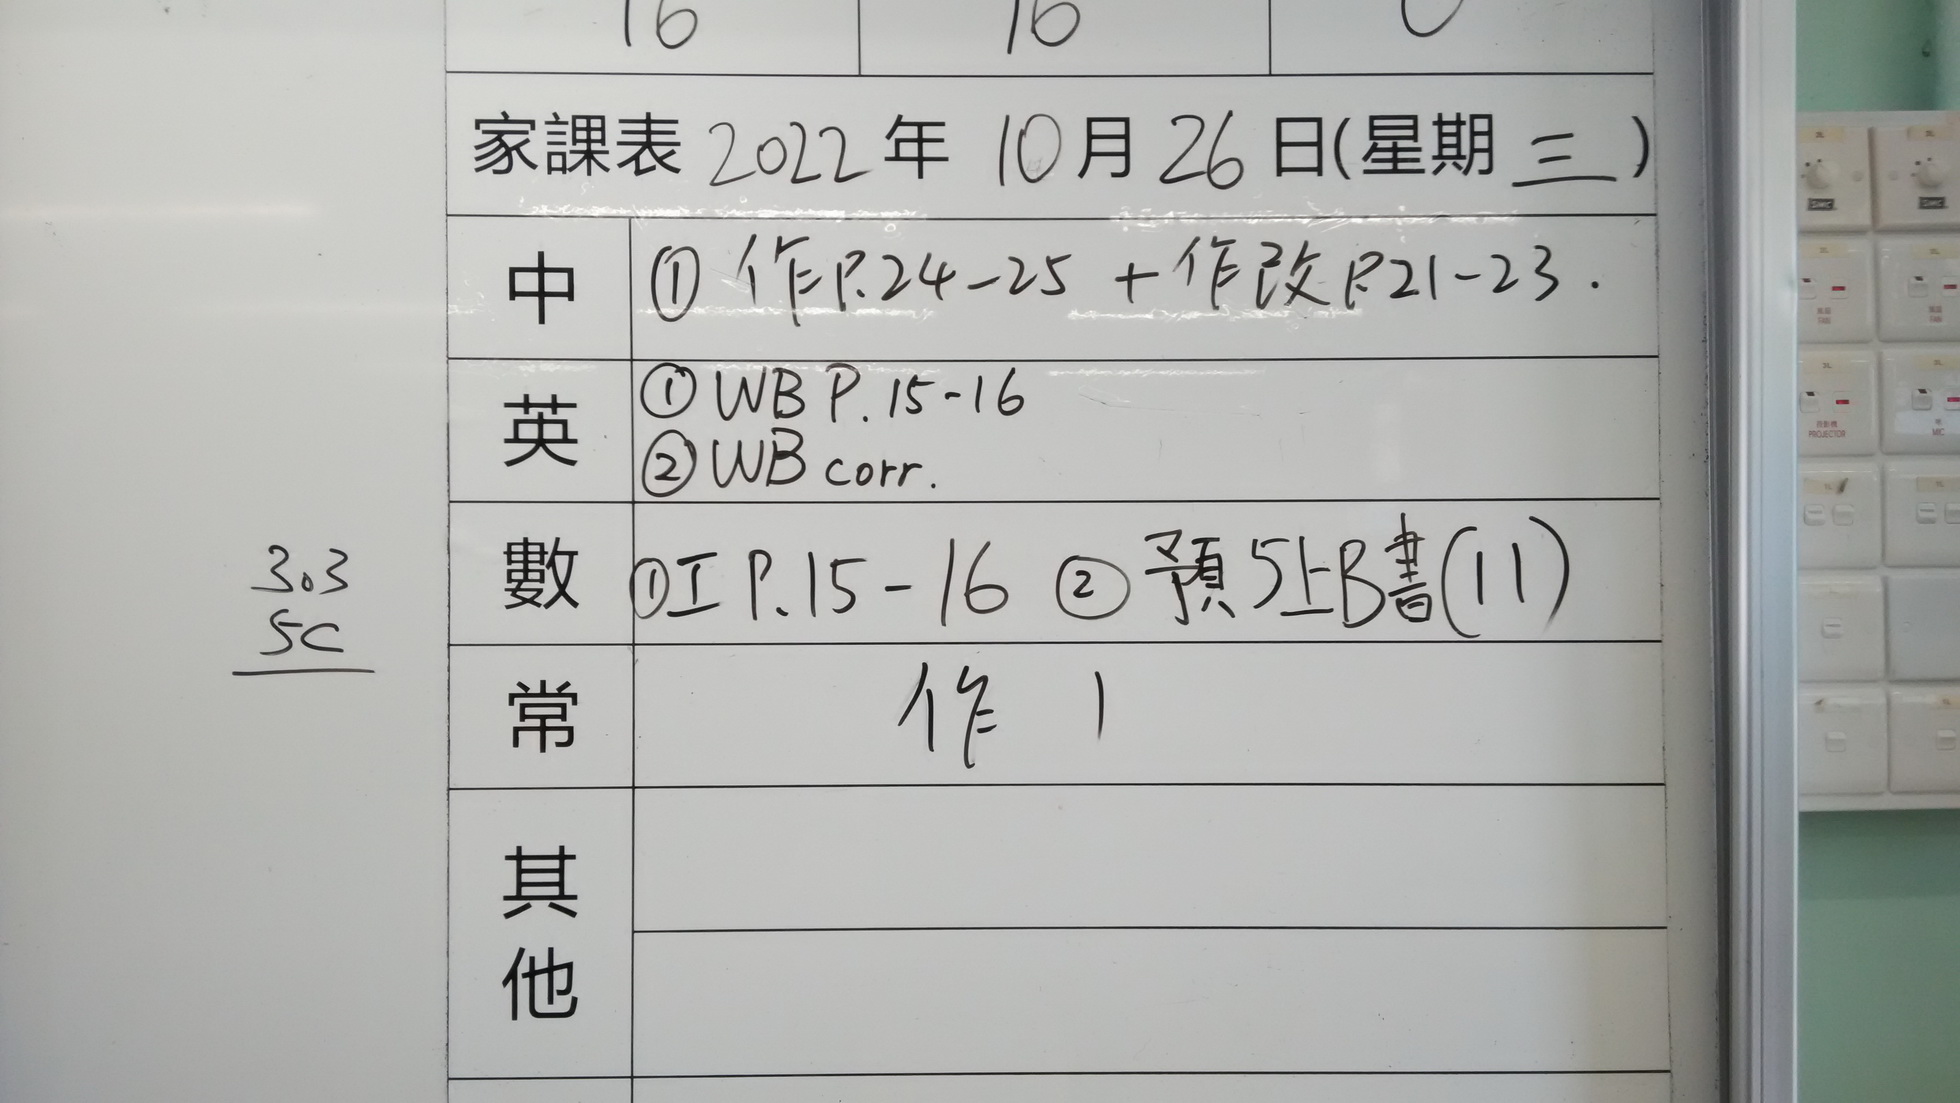 16 16 0
家課表 2022 年 10 月 26 日(星期 三 )
中 ① 作P.24-25 + 作改P.21-23.
英 ① WB P.15-16
② WB corr.
3.3
5C
數 ①工P.15-16 ② 預5上B書(11)
常 作 1
其他
PROJECTOR
MIC